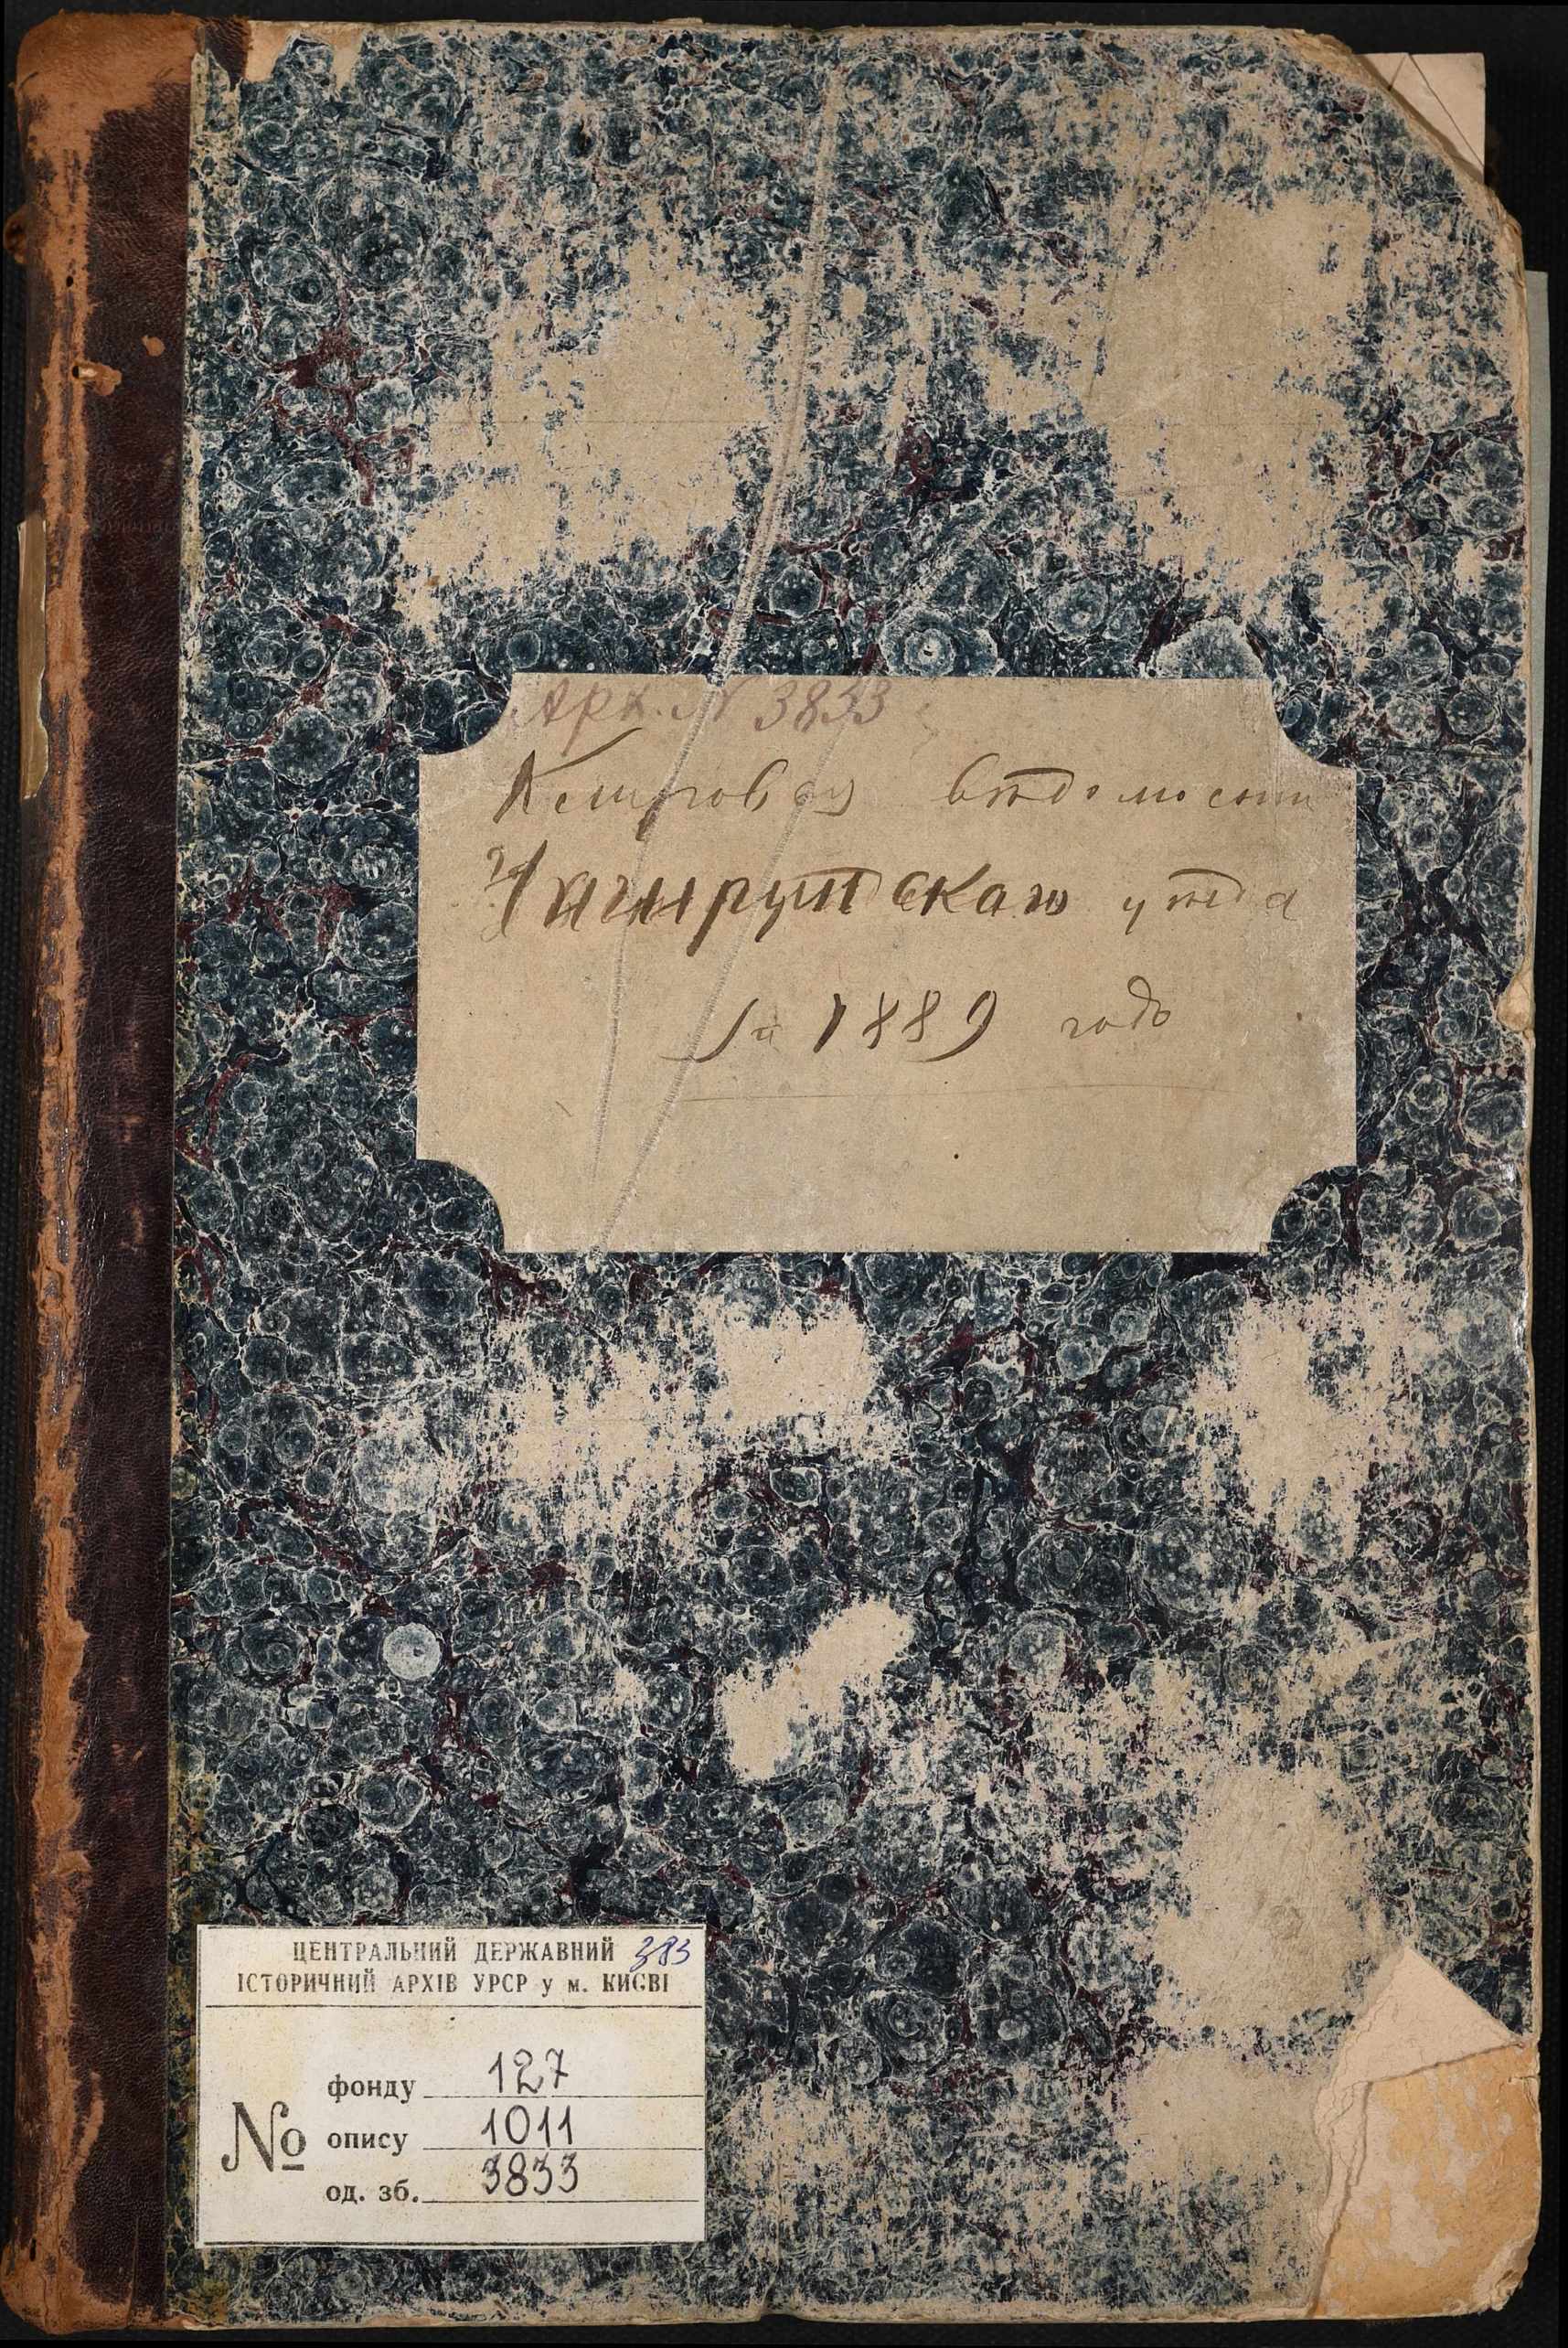 Арх. № 3833
Клировая вѣдомость
Чигиринскаго уѣзда
за 1889 годъ
ЦЕНТРАЛЬНИЙ ДЕРЖАВНИЙ 393
ІСТОРИЧНИЙ АРХІВ УРСР у м. КИЄВІ
№
фонду 127
опису 1011
од. зб. 3833